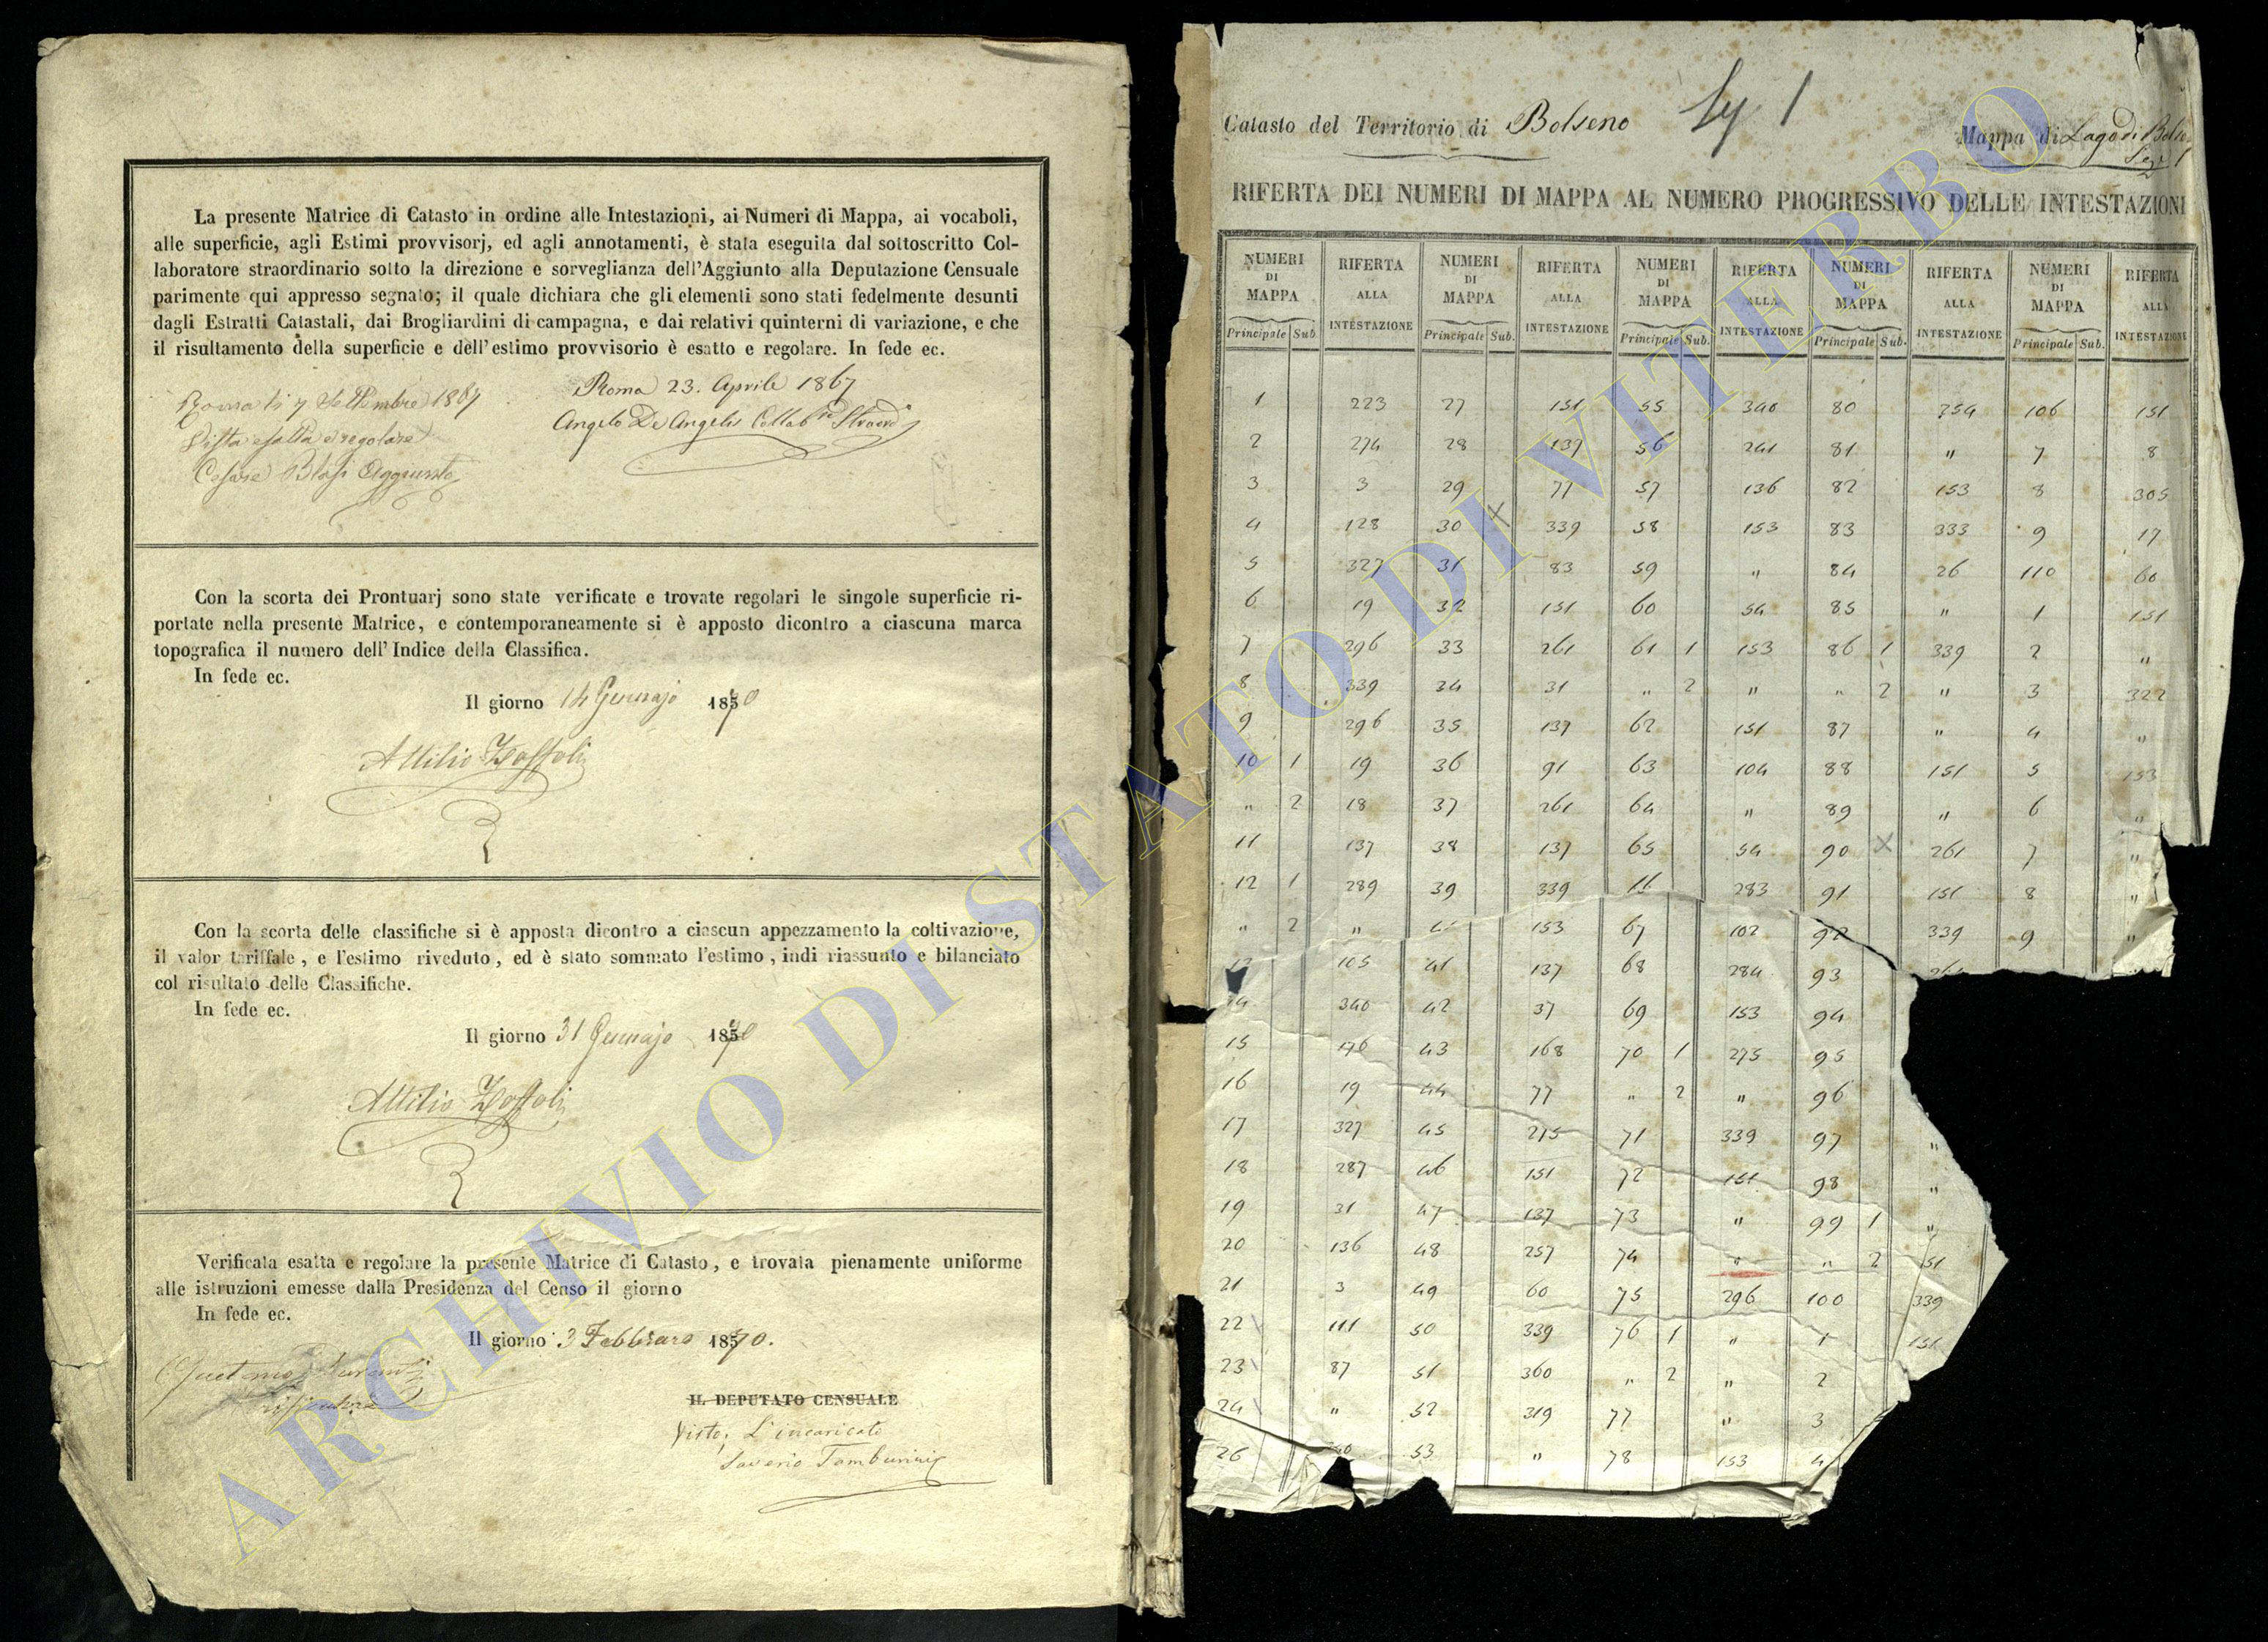 La presente Matrice di Catasto in ordine alle Intestazioni, ai Numeri di Mappa, ai vocaboli,
alle superficie, agli Estimi provvisorj, ed agli annotamenti, è stata eseguita dal sottoscritto Col-
laboratore straordinario sotto la direzione e sorveglianza dell'Aggiunto alla Deputazione Censuale
parimente qui appresso segnato; il quale dichiara che gli elementi sono stati fedelmente desunti
dagli Estratti Catastali, dai Brogliardini di campagna, e dai relativi quinterni di variazione, e che
il risultamento della superficie e dell'estimo provvisorio è esatto e regolare. In fede ec.
Roma 23. Aprile 1867
Angelo De Angelis Collab
Roma li 7 Settembre 1867
Vista esatta e regolare
Cesare Blasi Aggiunto
Con la scorta dei Prontuarj sono state verificate e trovate regolari le singole superficie ri-
portate nella presente Matrice, e contemporaneamente si è apposto dicontro a ciascuna marca
topografica il numero dell'Indice della Classifica.
In fede ec.
Il giorno 14 Gennajo 1870
Attilio Zoffoli
Con la scorta delle classifiche si è apposta dicontro a ciascun appezzamento la coltivazione,
il valor tariffale, e l'estimo riveduto, ed è stato sommato l'estimo, indi riassunto e bilanciato
col risultato delle Classifiche.
In fede ec.
Il giorno 31 Gennajo 1870
Attilio Zoffoli
Verificata esatta e regolare la presente Matrice di Catasto, e trovata pienamente uniforme
alle istruzioni emesse dalla Presidenza del Censo il giorno
In fede ec.
Il giorno 3 Febbraro 1870.
Gaetano
IL DEPUTATO CENSUALE
Visto, L'incaricato
Saverio Tamburini
Catasto del Territorio di Bolseno
Mappa di Lago di
RIFERTA DEI NUMERI DI MAPPA AL NUMERO PROGRESSIVO DELLE INTESTAZIONI
NUMERI DI MAPPA RIFERTA ALLA INTESTAZIONE NUMERI DI MAPPA RIFERTA ALLA INTESTAZIONE NUMERI DI MAPPA RIFERTA ALLA INTESTAZIONE NUMERI DI MAPPA RIFERTA ALLA INTESTAZIONE NUMERI DI MAPPA RIFERTA ALLA INTESTAZIONE
Principale Sub. Principale Sub. Principale Sub. Principale Sub. Principale Sub.
1 223 27 151 55 340 80 254 106 151
2 274 28 137 56 241 81 " 7 8
3 3 29 77 57 136 82 153 8 305
4 128 30 X 339 58 153 83 333 9 17
5 327 31 83 59 " 84 26 110 60
6 19 32 151 60 54 85 " 1 151
7 296 33 261 61 1 153 86 1 339 2 "
8 339 34 31 " 2 " " 2 " 3 322
9 296 35 137 62 151 87 " 4 "
10 1 19 36 91 63 104 88 151 5 153
" 2 18 37 261 64 " 89 " 6 "
11 137 38 137 65 54 90 X 261 7 "
12 1 289 39 339 283 91 151 8 "
" 2 " 153 67 102 92 339 9 "
105 41 137 68 284 93
340 42 37 69 153 94
15 176 43 168 70 1 275 95
16 19 44 77 " 2 " 96
17 327 45 215 71 339 97 "
18 287 46 151 72 151 98 "
19 31 47 137 73 " 99 1 "
20 136 48 257 74 " " 2
21 3 49 60 75 296 100 339
22 111 50 339 76 1 " 1 151
23 87 51 360 " 2 " 2
24 " 52 319 77 " 3
26 53 " 78 153 4
ARCHIVIO DI STATO DI VITERBO